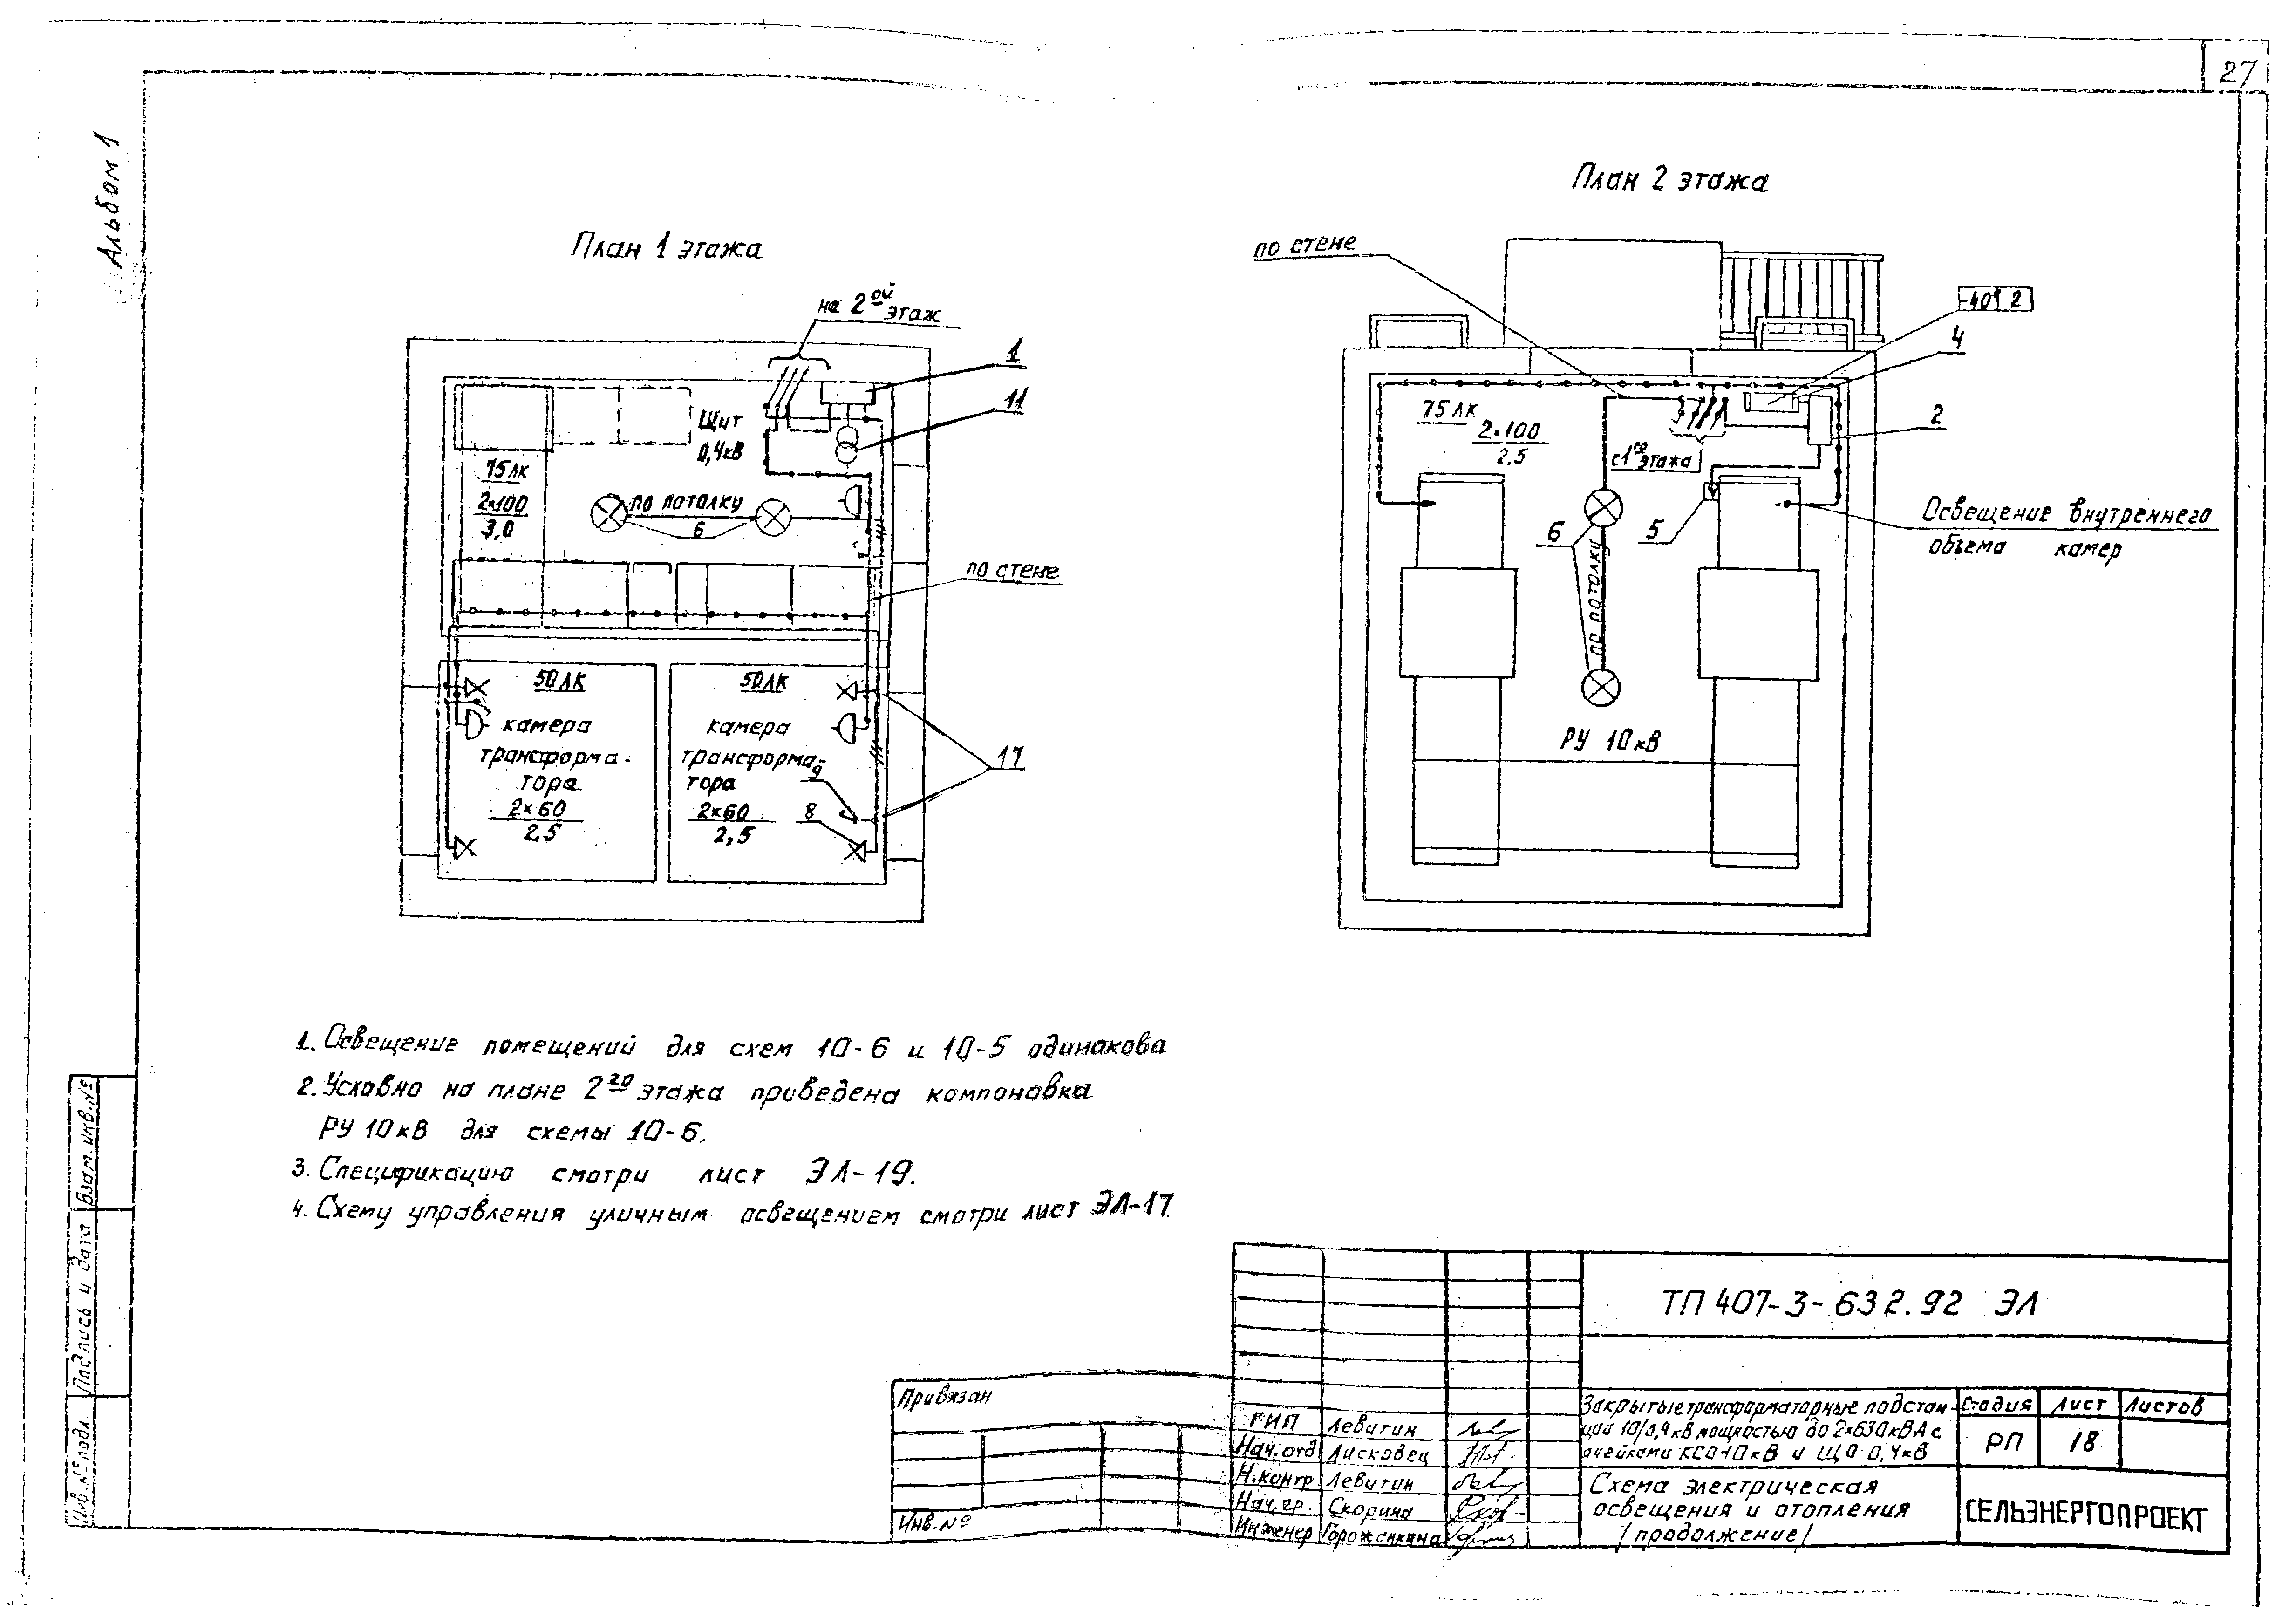 27
Альбом 1
План 1 этажа
на 2ой
этаж
1
11
Щит
0,4кВ
75 лк
2×100
3,0
по потолку
6
по стене
50 лк
50 лк
камера
трансформа-
тора
2×60
2,5
камера
трансформа-
тора
2×60
2,5
9
8
17
План 2 этажа
по стене
4
2
75 лк
2×100
2,5
с 1го
этажа
6
5
по потолку
Освещение внутреннего
объема камер
РУ 10кВ
1. Освещение помещений для схем 10-6 и 10-5 одинакова
2. Условно на плане 2го этажа приведена компоновка
РУ 10кВ для схемы 10-6.
3. Спецификацию смотри лист ЭЛ-19.
4. Схему управления уличным освещением смотри лист ЭЛ-17
Взам. инв. №
Подпись и дата
Инв. № подл.
Привязан
Инв. №
ГИП Левитин
Нач. отд Лисковец
Н. контр Левитин
Нач. гр. Скорина
Инженер
ТП 407-3-632.92 ЭЛ
Закрытые трансформаторные подстан-
ции 10/0,4 кВ мощностью до 2×630 кВА с
ячейками КСО-10кВ и ЩО 0,4кВ
Стадия Лист Листов
РП 18
Схема электрическая
освещения и отопления
(продолжение)
СЕЛЬЭНЕРГОПРОЕКТ